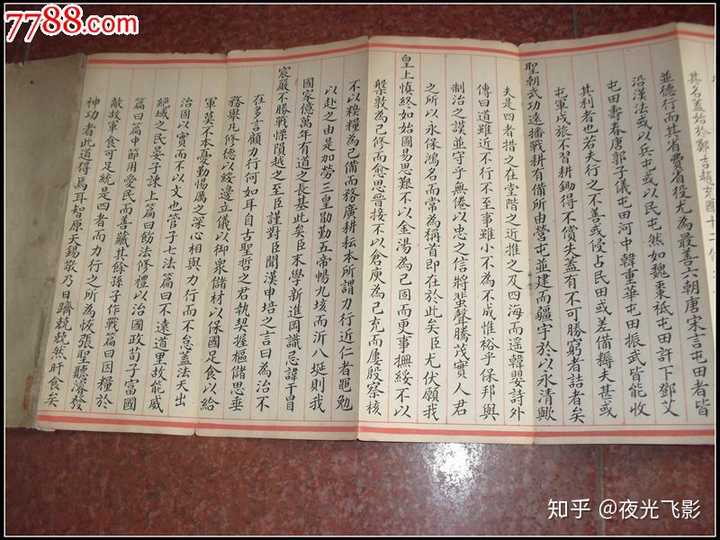 7788.com
中国收藏热线
其名蓋始於鄭吉趙充國十二
並德行而其省費省役尤為最善六朝唐宋言屯田者皆
沿漢法或以兵屯或以民屯然如魏棗祗屯田許下鄧艾
屯田壽春唐郭子儀屯田河中韓重華屯田振武皆能收
其利者也若夫行之不善或侵占民田或差借耨夫甚或
屯軍戍旅不習耕鋤得不償失蓋有不可勝窮者詰者矣
聖朝武功遠播戰耕有備所由營屯並建而疆宇於以永清歟
夫是四者措之在堂階之近推之及四海而遥韓嬰詩外
傳曰道雖近不行不至事雖小不為不成惟裕乎保邦與
制治之謨並守乎無倦以忠之信將蜚聲騰茂實人君
之所以永保鴻名而常為稱首即在於此矣臣尤伏願我
皇上慎終如始圖易思艱不以金湯為己固而更事撫綏不以
槃敦為己修而愈思晉接不以倉庾為己充而屢殷察核
不以糗糧為己備而務廣耕耘本所謂力行近仁者黽勉
以赴之由是加勞三皇勖勤五帝暢九垓而泝八埏則我
國家億萬年有道之長基此矣臣末學新進罔識忌諱干冒
宸嚴不勝戰慄隕越之至臣謹對臣聞漢申培之言曰為治不
在多言顧力行何如耳自古聖哲之君執契握樞儲思垂
務舉凡修德以綏邊立儀以御衆儲材以保國足食以給
軍莫不本憂勤惕厲之深心相與力行而不怠蓋法天出
治國以實而不以文也管子七法篇曰不遠道里故能威
絕域之民晏子諫上篇曰飭法修禮以治國政荀子富國
篇曰節用愛民而善藏其餘孫子作戰篇曰因糧於
敵故軍食可足統是四者而力行之所為恢張聖聽濬發
神功者此道得焉耳智原天錫乃日躋兢兢然旰食矣
知乎 @夜光飞影